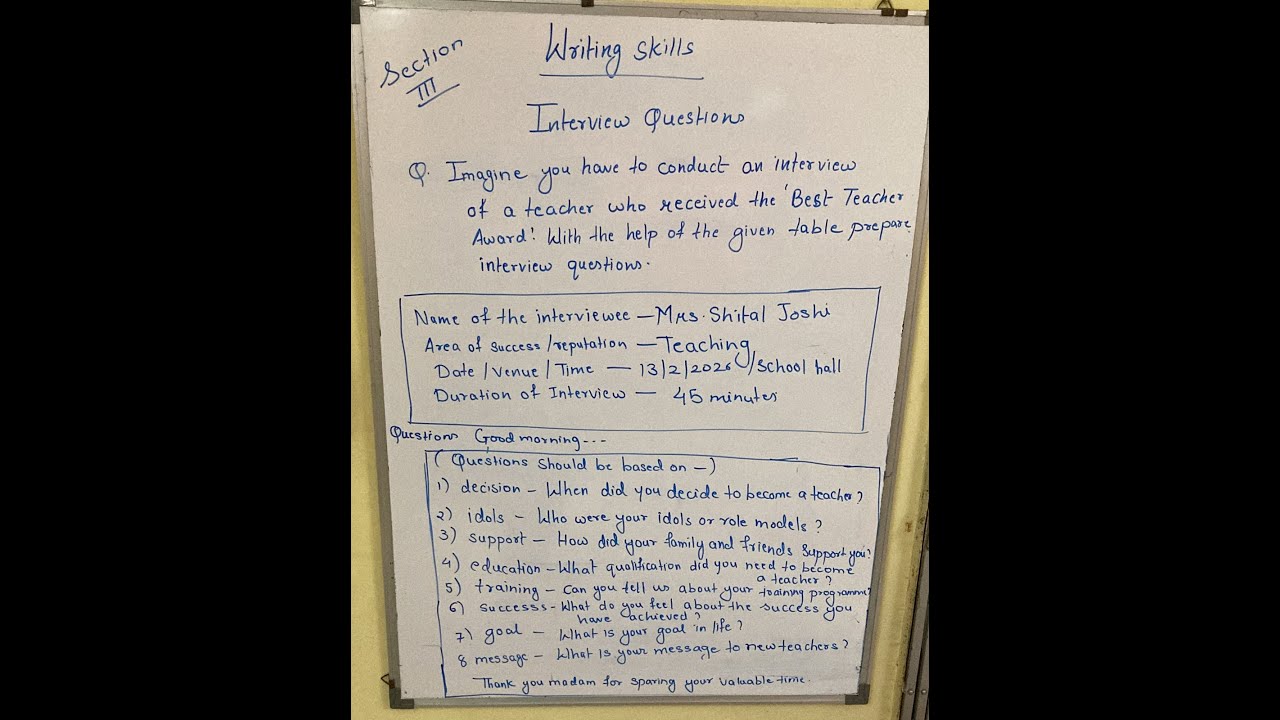 Section
III
Writing Skills
Interview Questions
Q. Imagine you have to conduct an interview
of a teacher who received the 'Best Teacher
Award! With the help of the given table prepare
interview questions.
Name of the interviewee – Mrs. Shital Joshi
Area of success/reputation – Teaching
Date/Venue/Time – 13/2/2026/School hall
Duration of Interview – 45 minutes
Questions Good morning---
(Questions should be based on –)
1) decision – When did you decide to become a teacher?
2) idols – Who were your idols or role models?
3) support – How did your family and friends support you?
4) education – What qualification did you need to become
a teacher?
5) training – Can you tell us about your training programme?
6) successs – What do you feel about the success you
have achieved?
7) goal – What is your goal in life?
8 message – What is your message to new teachers?
Thank you madam for sparing your valuable time.